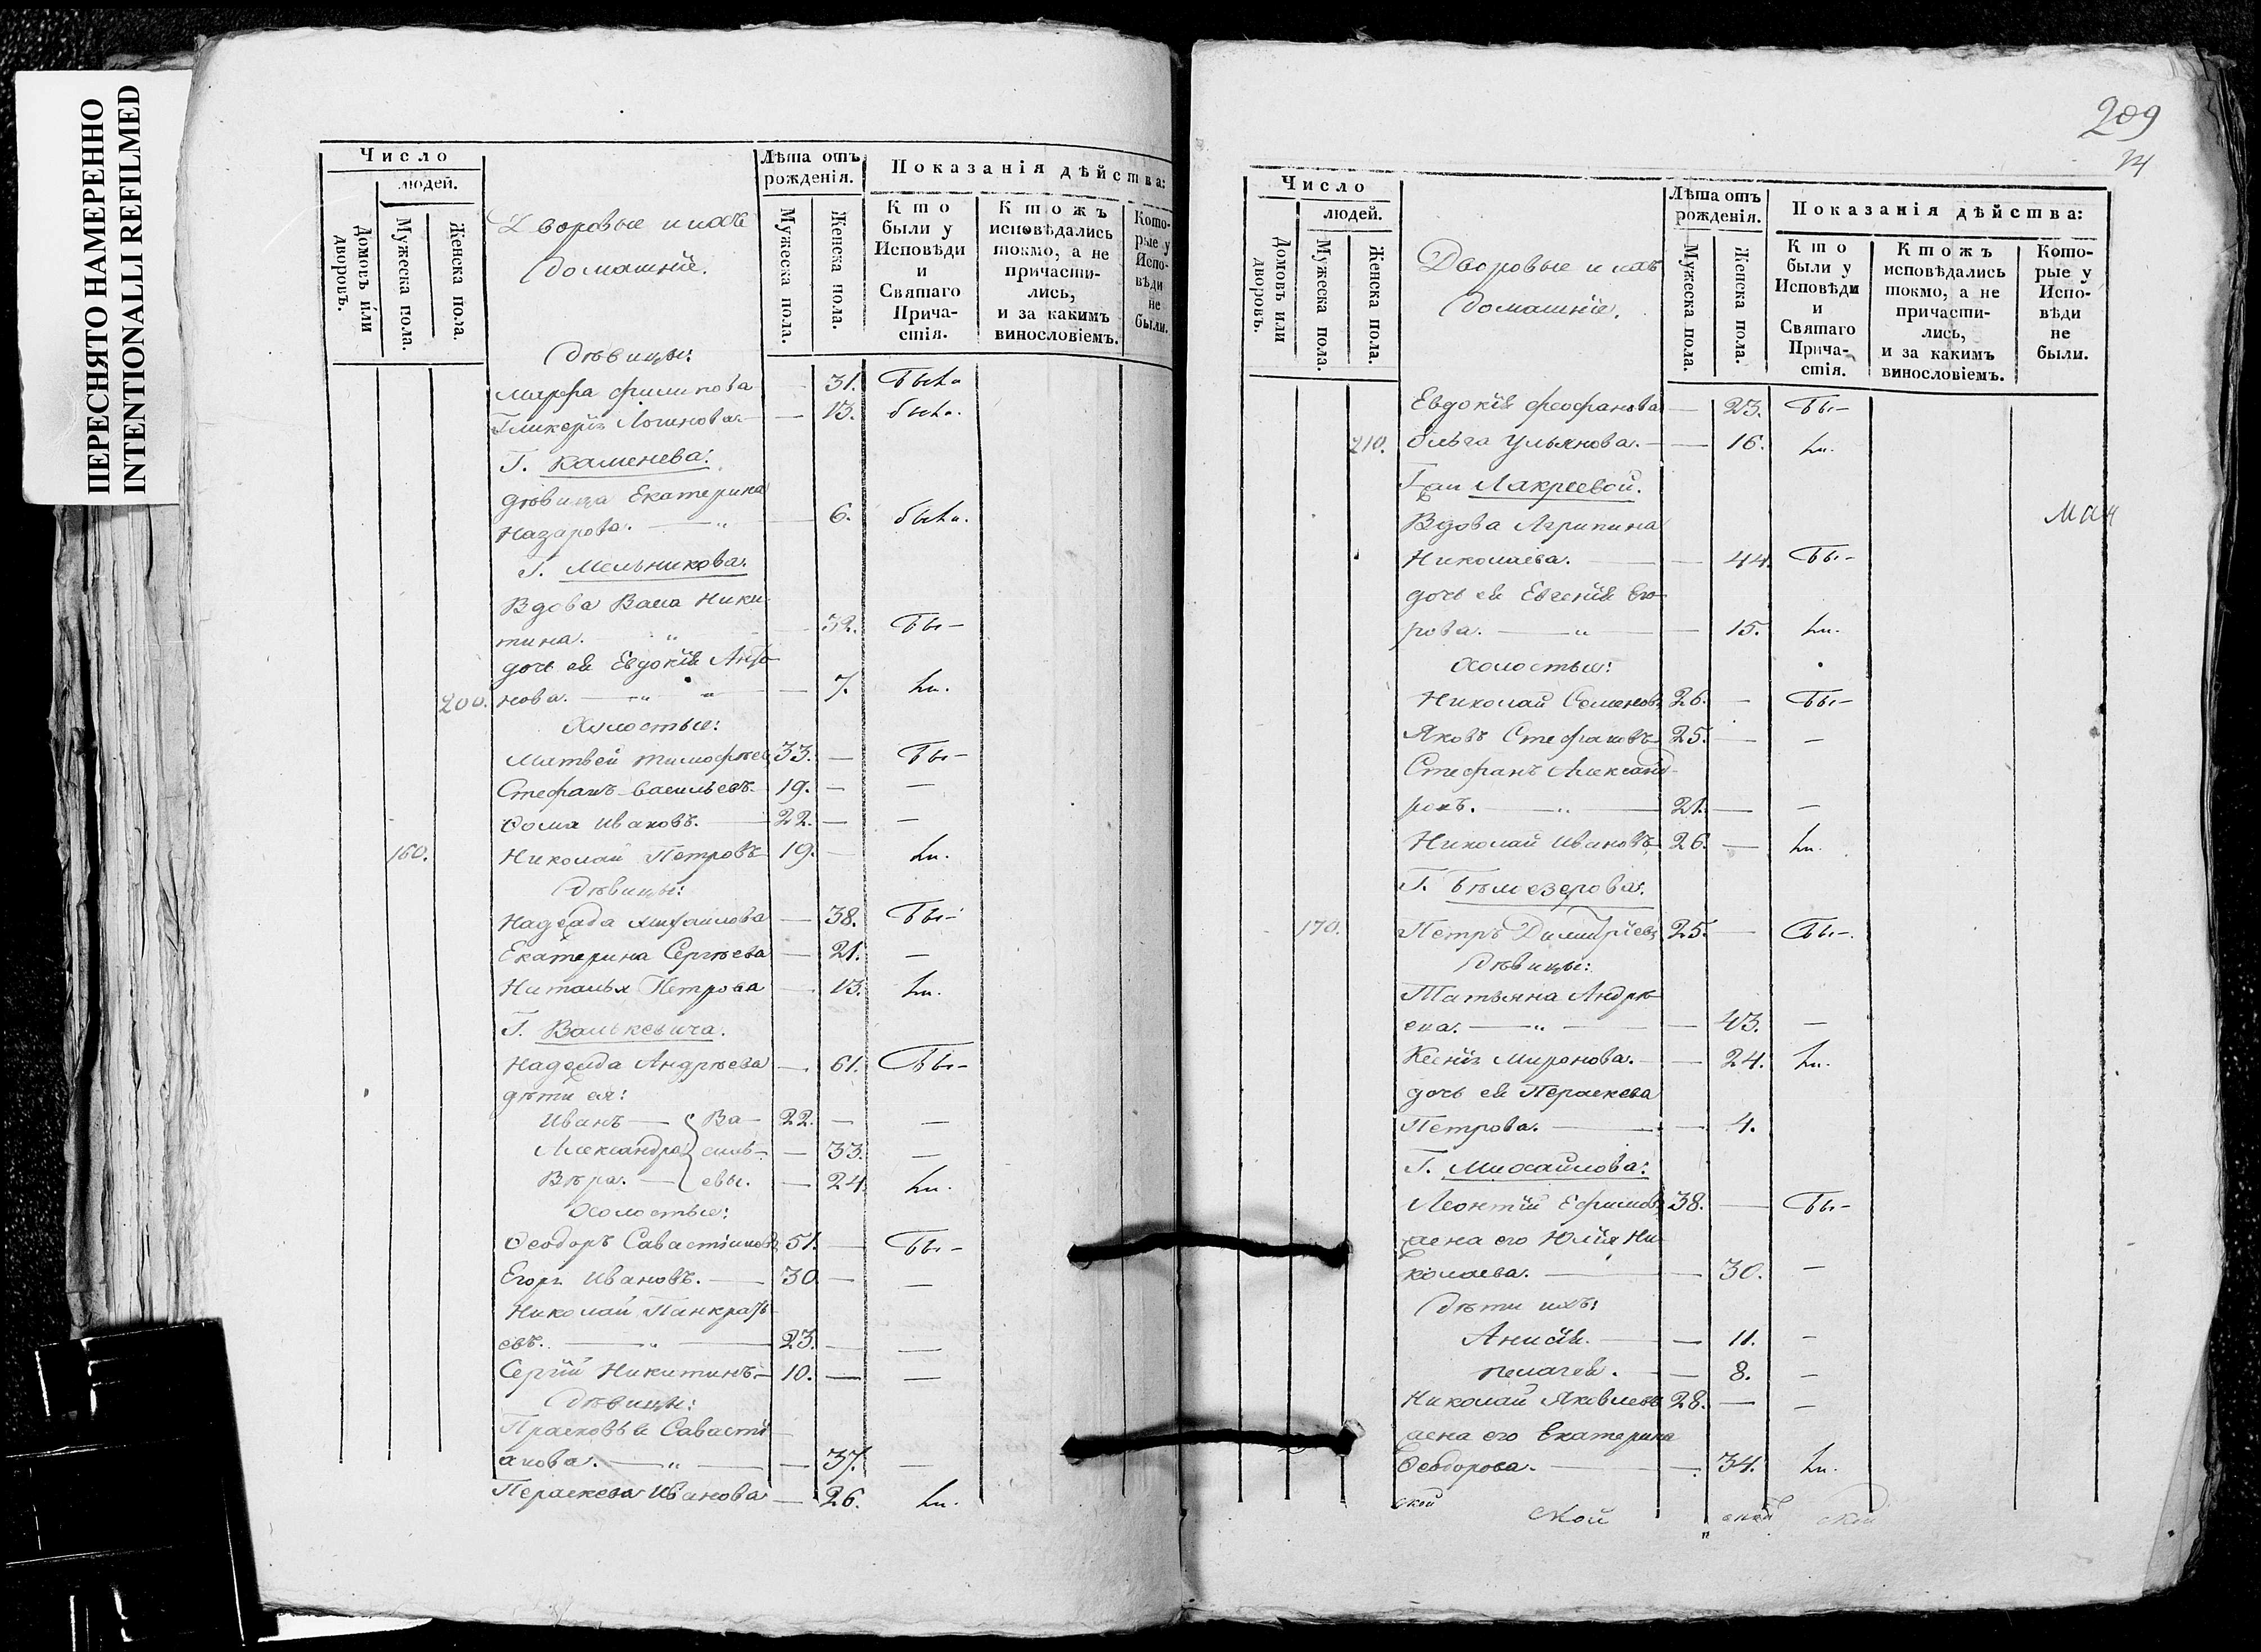 ПЕРЕСНЯТО НАМЕРЕННО
INTENTIONALLI REFILMED
Число
людей.
Домовъ или дворовъ.
Мужеска пола.
Женска пола.
Дворовые и ихъ
домашніе.
Лѣта отъ рожденія.
Мужеска пола.
Женска пола.
Показанія дѣйства:
Кто были у Исповѣди и Святаго Причастія.
Ктожъ исповѣдались токмо, а не причастились, и за какимъ винословіемъ.
Которые у Исповѣди не были.
Дѣвицы:
Марфа Филипова — 31. была
Гликерія Логинова. — 13. была.
Г. Каменева:
дѣвица Екатерина
Назарова. — 6. была.
Г. Мельникова:
Вдова Васа Ники-
тина. — 32. бы-
дочь ея Евдокія Анто-
200. нова. — 7. ли.
Холостые:
Матвей Тимофеев 33. — бы-
Стефанъ Васильевъ. 19. — —
Ѳома Ивановъ. 22. — —
160. Николай Петровъ 19. — ли.
Дѣвицы:
Надежда Михаилова — 38. бы-
Екатерина Сергѣева — 21. —
Наталья Петрова — 13. ли.
Г. Валькевича.
Надежда Андрѣева — 61. бы-
дѣти ея:
Иванъ — Ва- 22. — —
Александра силь- — 33. —
Вѣра. — евы. — 24. ли.
Холостые:
Ѳеодоръ Савастіановъ 51. — бы-
Егоръ Ивановъ. — 30. — —
Николай Панкрать-
евъ. — 23. — —
Сергій Никитинъ. — 10. — —
Дѣвицы:
Прасковья Савасті-
анова. — 37. —
Параскева Иванова — 26. ли.
209
Число
людей.
Домовъ или дворовъ.
Мужеска пола.
Женска пола.
Дворовые и ихъ
домашніе.
Лѣта отъ рожденія.
Мужеска пола
Женска пола.
Показанія дѣйства:
Кто были у Исповѣди и Святаго Причастія.
Ктожъ исповѣдались токмо, а не причастились, и за какимъ винословіемъ.
Которые у Исповѣди не были.
Евдокія Феофанова — 23. бы-
210. Ольга Ульянова. — 16. ли.
Г-жи Лакреевой.
Вдова Агрипина
Николаева. — 44. бы-
дочь ея Евгенія Его-
рова. — 15. ли.
Холостые:
Николай Семеновъ 26. — бы-
Яковъ Стефановъ 25. — —
Стефанъ Александ-
ровъ. — 21. — —
Николай Ивановъ 26. — ли.
Г. Бѣлоезерова.
170. Петръ Димитріевъ 25. — бы-.
Дѣвицы:
Татьяна Андрѣ-
ева. — 43. —
Ксенія Миронова. — 24. ли.
дочь ея Параскева
Петрова. — 4.
Г. Михайлова:
Леонтій Ефимовъ 38. — бы-
жена его Юлія Ни-
колаева. — 30. —
Дѣти ихъ:
Анисія. — 11. —
Пелагея. — 8. —
Николай Яковлевъ 28. — —
жена его Екатерина
Ѳеодорова. — 34. ли.
ской ской ской ской